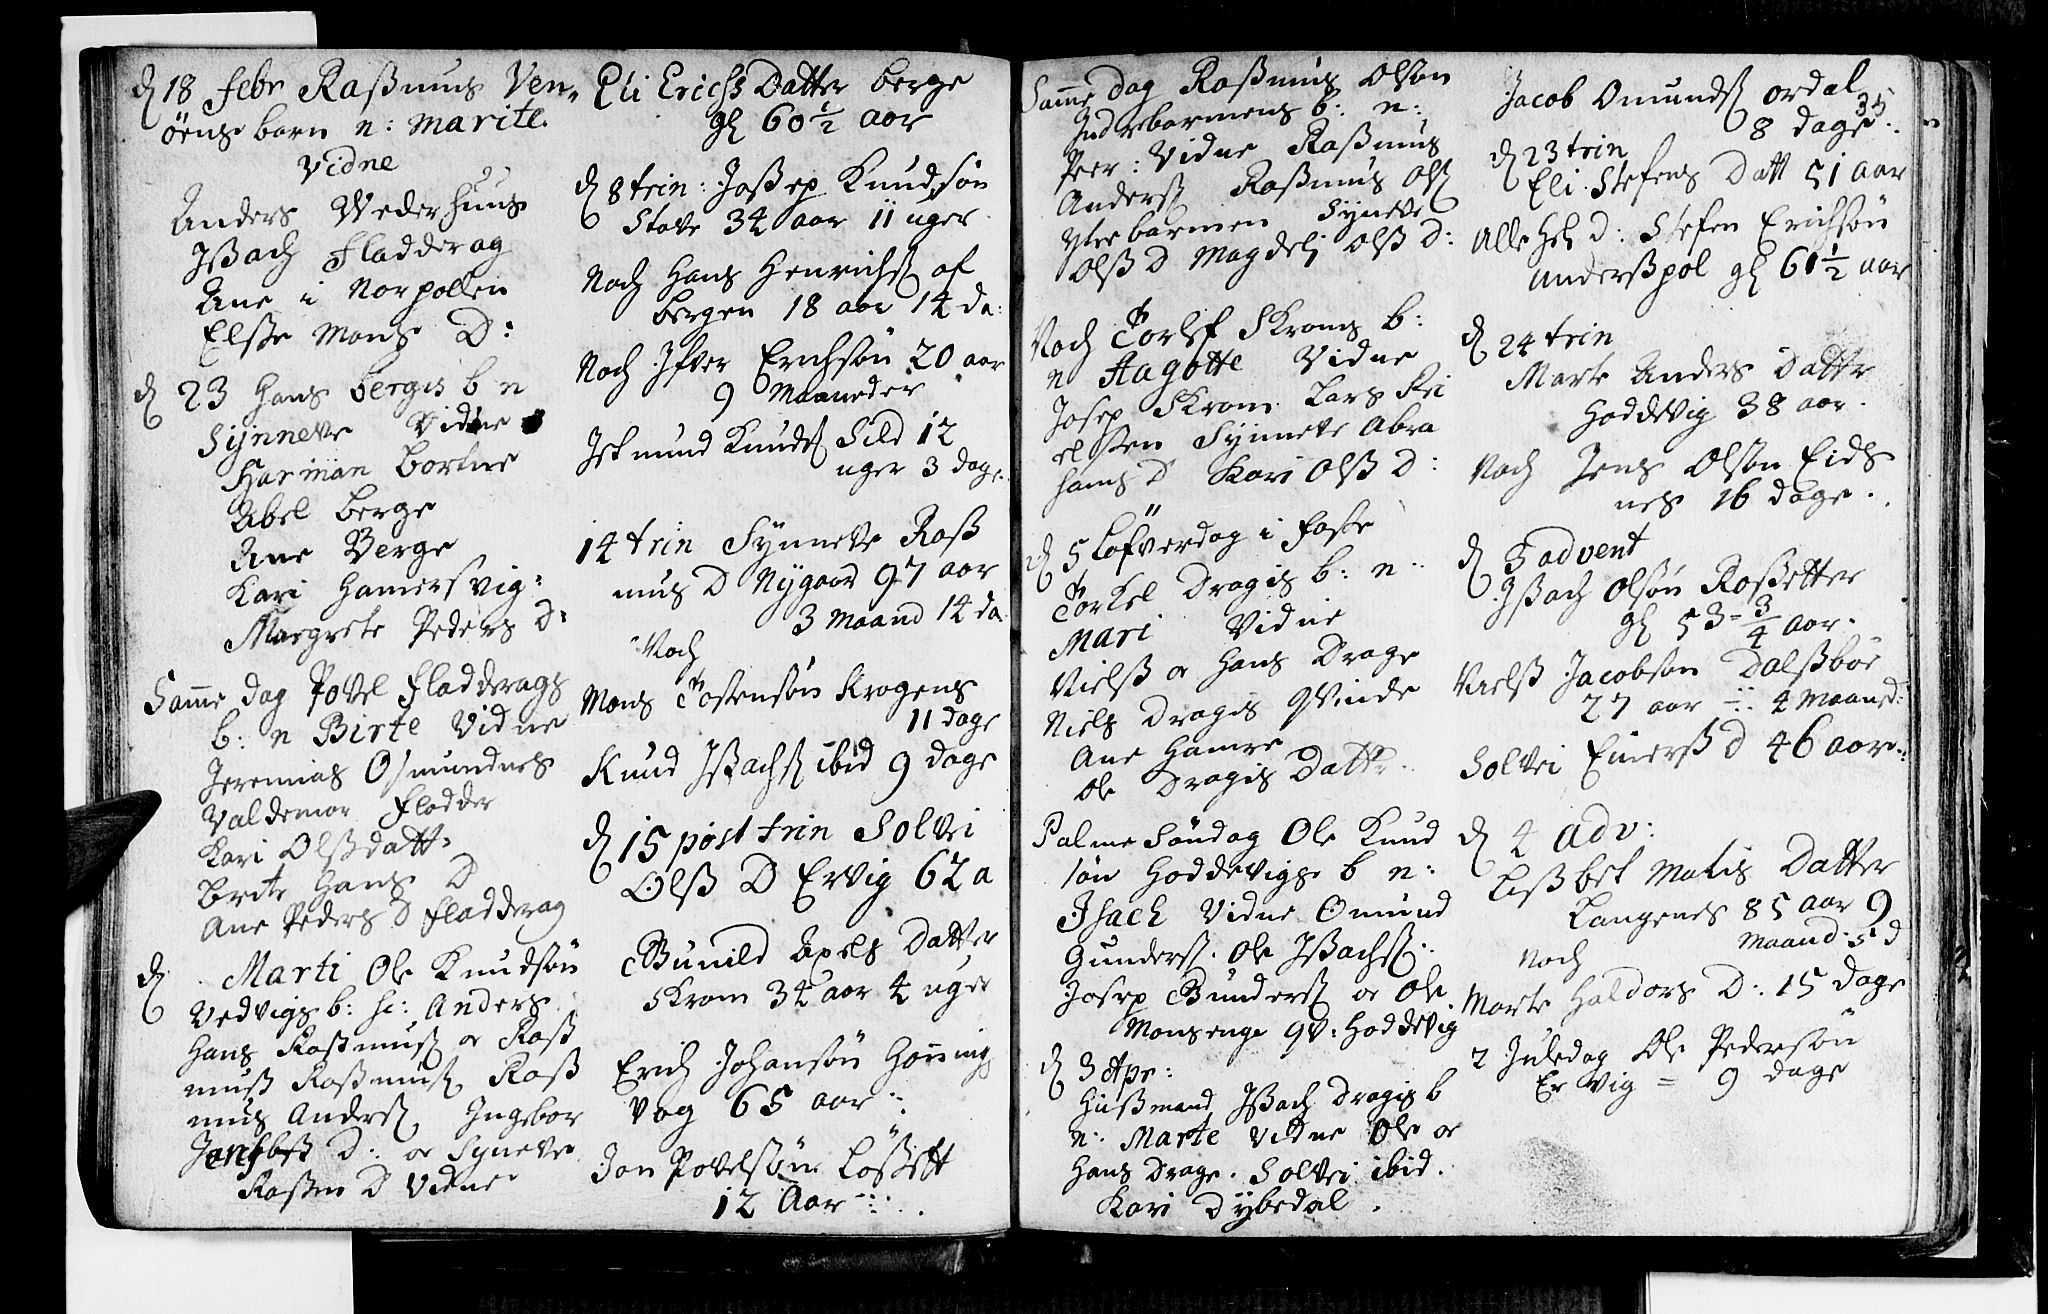 d 18 Febr Rasmus Ven-
øens barn n: Marite.
Vidne
Anders Wederhuus
Issach Fladderag
Ane i Norpollen
Elsse Mons D:
d 23 Hans bergis b n
Synneve Vidne
Harman Bortne
Abel Berge
Ane Berge
Kari Hamersvig:
Margrete Peders D:
Samme dag Povel Fladderags
b: n Birte Vidne
Jeremias Osmundnes
Valdemar Fladder
Kari Olssdatt:
Brite Hans D
Ane Peders D Fladderag
d Marti Ole Knudsøn
Vedvigs b: h: Anders
Hans Rasmuss o Rass
muss Rasmuss Rass
mus Anderss Ingebor
D: o Syneve
D Vidne
Eli Erichs Datter Berge
gl 60 1/2 aar
d 8 trin: Jossep Knudsøn
Stave 34 aar 11 uger
Noch Hans Henrichs af
Bergen 18 aar 14 da:
Noch Ifver Erichsøn 20 aar
9 Maaneder
Knuds Sild 12
uger 3 dage.
14 trin Synneve Rass
mus D Nygaar 97 aar
3 Maand 14 da
Noch
Mons Tostensøn Krogens
11 dage
Knud Issachs ibid 9 dage
d 15 post trin Solvi
Olss D Ervig 62 a
Gunild Axels Datter
Skram 34 aar 4 uger
Erich Johansøn Honnings
vog 65 aar
Jon Povelsøn Løsett
12 Aar
Samme dag Rasmus Olsøn
Indrebarmens b: n:
Peer: Vidne Rasmus
Anderss Rasmus Olss
Ytrebarmen Syneve
Olss D Magdeli Olss D:
Noch Torlef Skrams b:
n Aagotte Vidne
Josep Skram Lars Rei
elsten Synneve Abra
hams D Kari Olss D:
d 5 Løfverdag i Faste
Torkel Dragis b: n:
Mari Vidne
Nielss o Hans Drage
Niels Dragis Qvinde
Ane Hamre
Ole Dragis Datt:
Palme Søndag Ole Knud
søn Hoddevigs b n:
Isach Vidne Omund
Gunderss. Ole Issachss:
Josep Gunderss o Ole
Monsenge qv: Hoddevig
d 3 Apr:
Hussmand Issach Dragis b
n: Marte Vidne Ole o
Hans Drage. Solvi ibid.
Kari Dybedal.
35
Jacob Omunds Ordal
8 dage:
d 23 trin
Eli Stefens Datt 51 aar
Alle Hel d: Stefen Erichsøn
Anderspol gl 61 1/2 aar
d 24 trin
Marte Anders Datter
Hoddevig 38 aar.
Noch Jens Olsøn Eids
nes 16 dage.
d 3 advent
Issach Olsøn Rossetter
gl 53 - 3/4 aar.
Nielss Jacobsøn Dalssbøe
27 aar 4 Maaned:
Solvei Einerss D 46 aar:
d 4 Adv:
Lissbet Matis Datter
Langenes 85 aar 9
Maand: 5 d
Noch
Marte Haldors D: 15 dage
2 Juledag Ole Pedersøn
Ervig = 9 dage